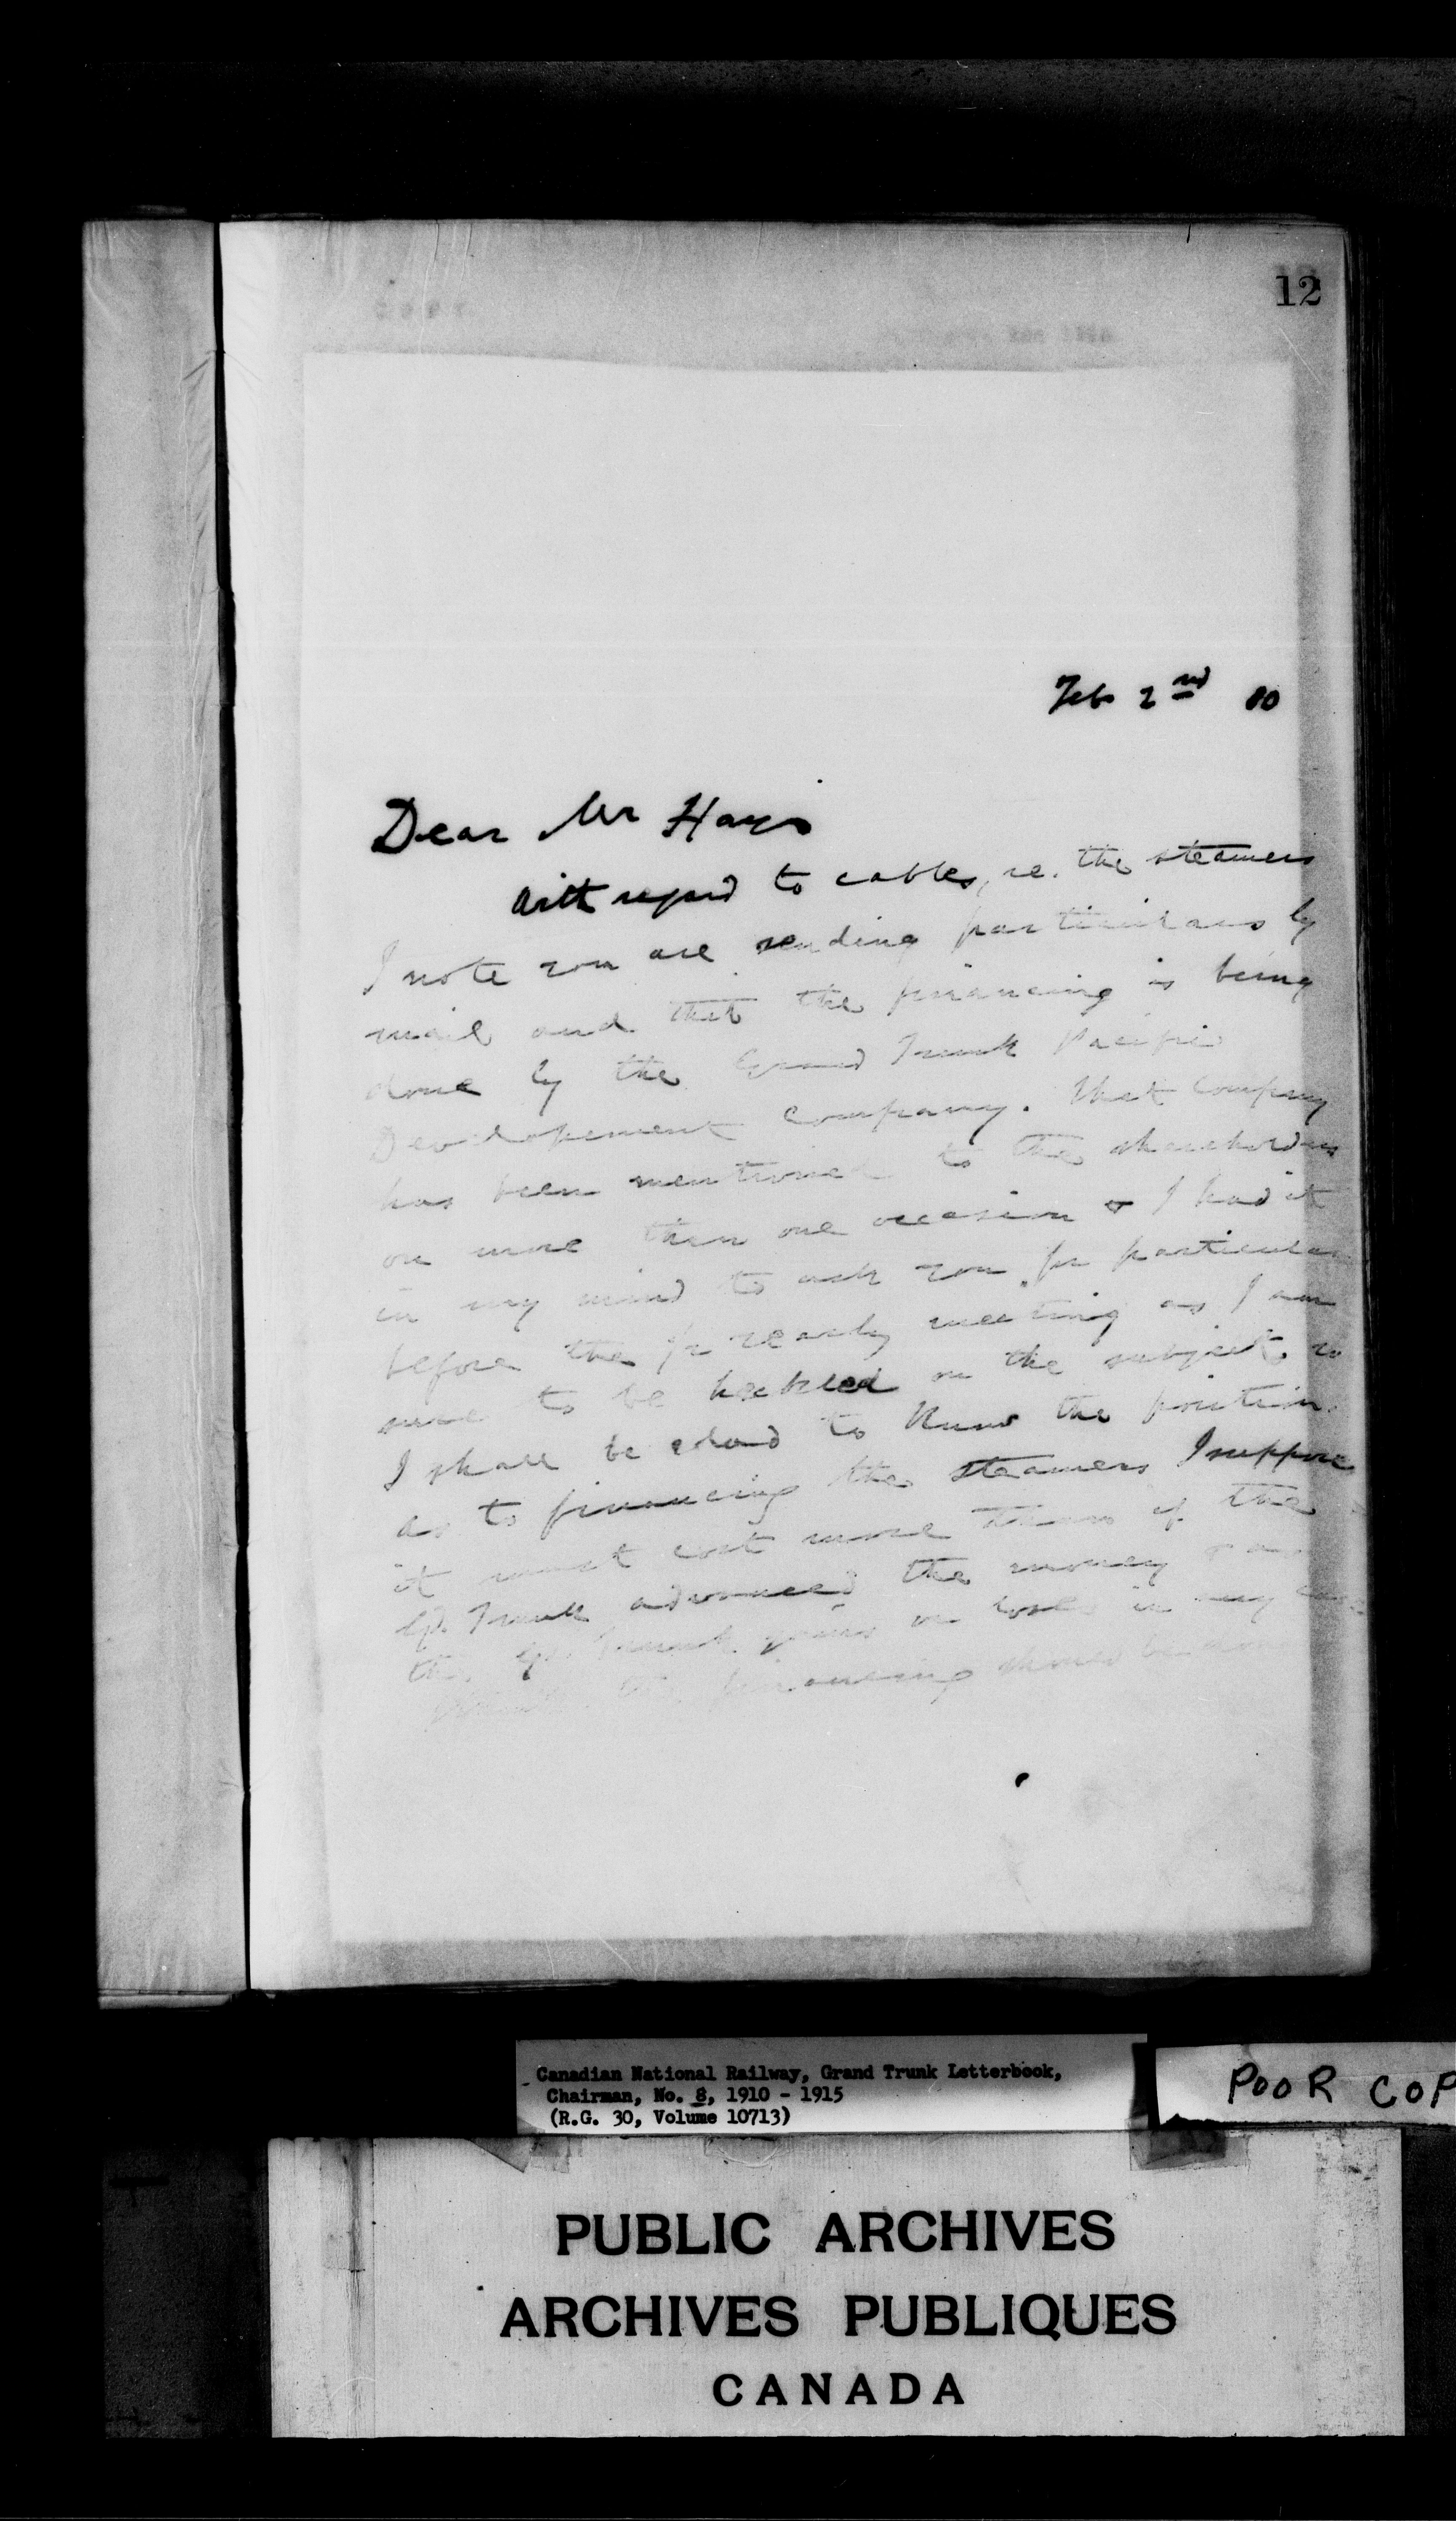 12
Feb 2nd 10
Dear Mr Hays
With regard to cables, re. the steamers
I note you are sending particulars by
mail and that the financing is being
done by the Grand Trunk Pacific
Developement Company. That Company
has been mentioned to the shareholders
on more than one occasion & I had it
in my mind to ask you for particulars
before the ½ yearly meeting as I am
sure to be heckled on the subject, so
I shall be glad to know the position.
as to financing the steamers I suppose
it must cost more than if the
Gd. Trunk advanced the money
the Gd. Trunk gains or loses in any
the financing should be
Canadian National Railway, Grand Trunk Letterbook,
Chairman, No. 8, 1910 - 1915
(R.G. 30, Volume 10713)
POOR COP
PUBLIC ARCHIVES
ARCHIVES PUBLIQUES
CANADA